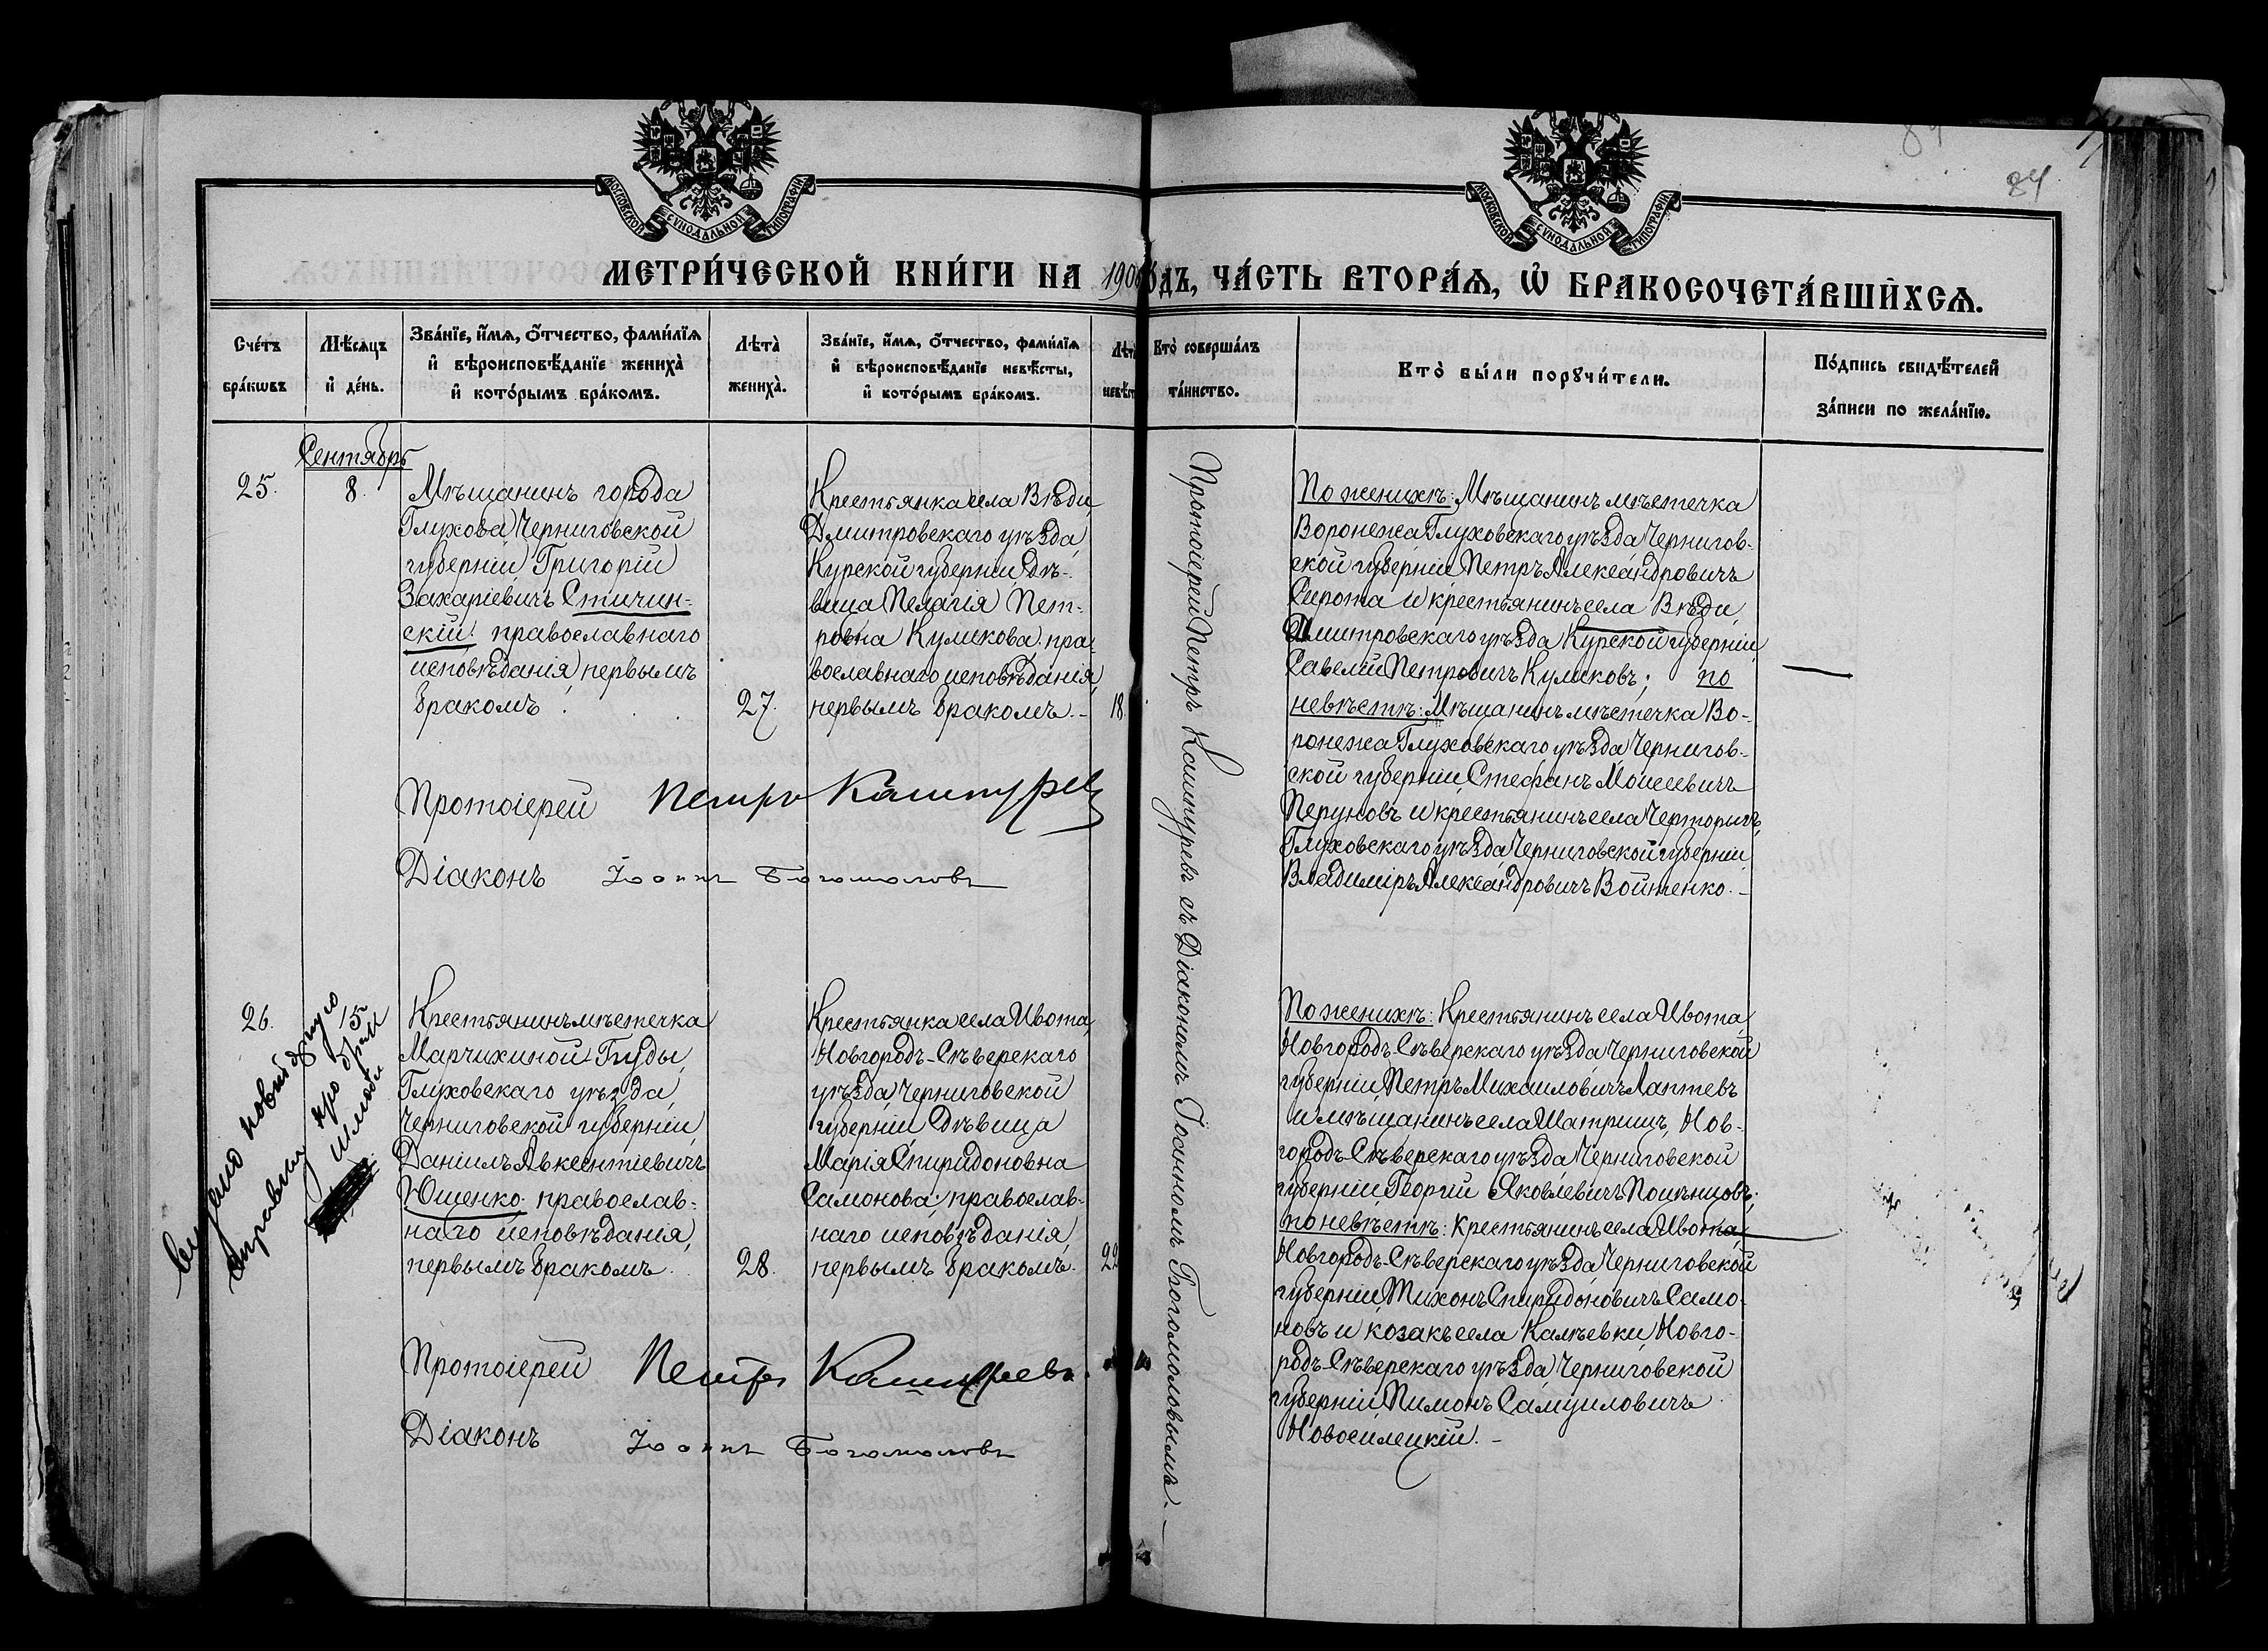 МОСКОВСКОЙ СѴНОДАЛЬНОЙ ТИПОГРАФІИ
МОСКОВСКОЙ СѴНОДАЛЬНОЙ ТИПОГРАФІИ
84
МЕТРИ́ЧЕСКОЙ КНИ́ГИ НА 190 ДЪ, ЧА́СТЬ ВТОРА́Ѧ, Ѡ҆ БРАКОСОЧЕТА́ВШИХСѦ.
Сче́тъ бра́кѡвъ
Мѣ́сѧцъ и҆ де́нь.
Зва́нїе, и҆́мѧ, ѻ҆́тчество, фами́лїѧ и҆ вѣроисповѣ́данїе женихà и҆ кото́рымъ бра́комъ.
Лѣ́та женихà.
Зва́нїе, и҆́мѧ, ѻ҆́тчество, фами́лїѧ и҆ вѣроисповѣ́данїе невѣ́сты, и҆ кото́рымъ бра́комъ.
Лѣ́т невѣ́ст
Кто̀ соверша́лъ та́инство.
Кто̀ бы́ли порꙋчи́тели.
По́дпись свидѣ́телей за́писи по жела́нїю.
Сентябрь
25.
8.
Мѣщанинъ города
Глухова, Черниговской
губерніи, Григорій
Захаріевичъ Стичин-
скій; православнаго
исповѣданія, первымъ
бракомъ.
27.
Крестьянка села Вѣди,
Дмитровскаго уѣзда,
Курской губерніи, дѣ-
вица Пелагія Пет-
ровна Куликова; пра-
вославнаго исповѣданія,
первымъ бракомъ.-
18.
Протоіерей Петръ Кашпуревъ съ Діакономъ Іоанномъ Богомоловымъ.-
По женихѣ: Мѣщанинъ мѣстечка
Воронежа, Глуховскаго уѣзда, Чернигов-
ской губерніи, Петръ Александровичъ
Сирота и крестьянинъ села Вѣди,
Дмитровскаго уѣзда, Курской губерніи,
Савелій Петровичъ Куликовъ; по
невѣстѣ: Мѣщанинъ мѣстечка Во-
ронежа, Глуховскаго уѣзда, Чернигов-
ской губерніи, Стефанъ Моисеевичъ
Перуновъ и крестьянинъ села Черторигъ,
Глуховскаго уѣзда, Черниговской губерніи,
Владиміръ Александровичъ Войтенко.-
Протоіерей Петръ Кашпурев
Діаконъ Іоаннъ Богомоловъ
26.
15.
Крестьянинъ мѣстечка
Марчихиной-Буды,
Глуховскаго уѣзда,
Черниговской губерніи,
Даніилъ Авксентіевичъ
Ющенко; православ-
наго исповѣданія,
первымъ бракомъ.
28.
Крестьянка села Ивота,
Новгородъ-Сѣверскаго
уѣзда, Черниговской
губерніи, дѣвица
Марія Спиридоновна
Самонова; православ-
наго исповѣданія,
первымъ бракомъ.
22
По женихѣ: Крестьянинъ села Ивота,
Новгородъ-Сѣверскаго уѣзда, Черниговской
губерніи, Петръ Михаиловичъ Лаптевъ
и мѣщанинъ села Шатрищъ, Нов-
городъ-Сѣверскаго уѣзда, Черниговской
губерніи, Георгій Яковлевичъ
по невѣстѣ: Крестьянинъ села Ивота,
Новгородъ-Сѣверскаго уѣзда, Черниговской
губерніи, Тихонъ Спиридоновичъ Само-
новъ и козакъ села Калѣевки, Новго-
родъ-Сѣверскаго уѣзда, Черниговской
губерніи, Пимонъ Самуиловичъ
Новосилецкій.-
про
Протоіерей Петръ Кашпуревъ.
Діаконъ Іоаннъ Богомоловъ